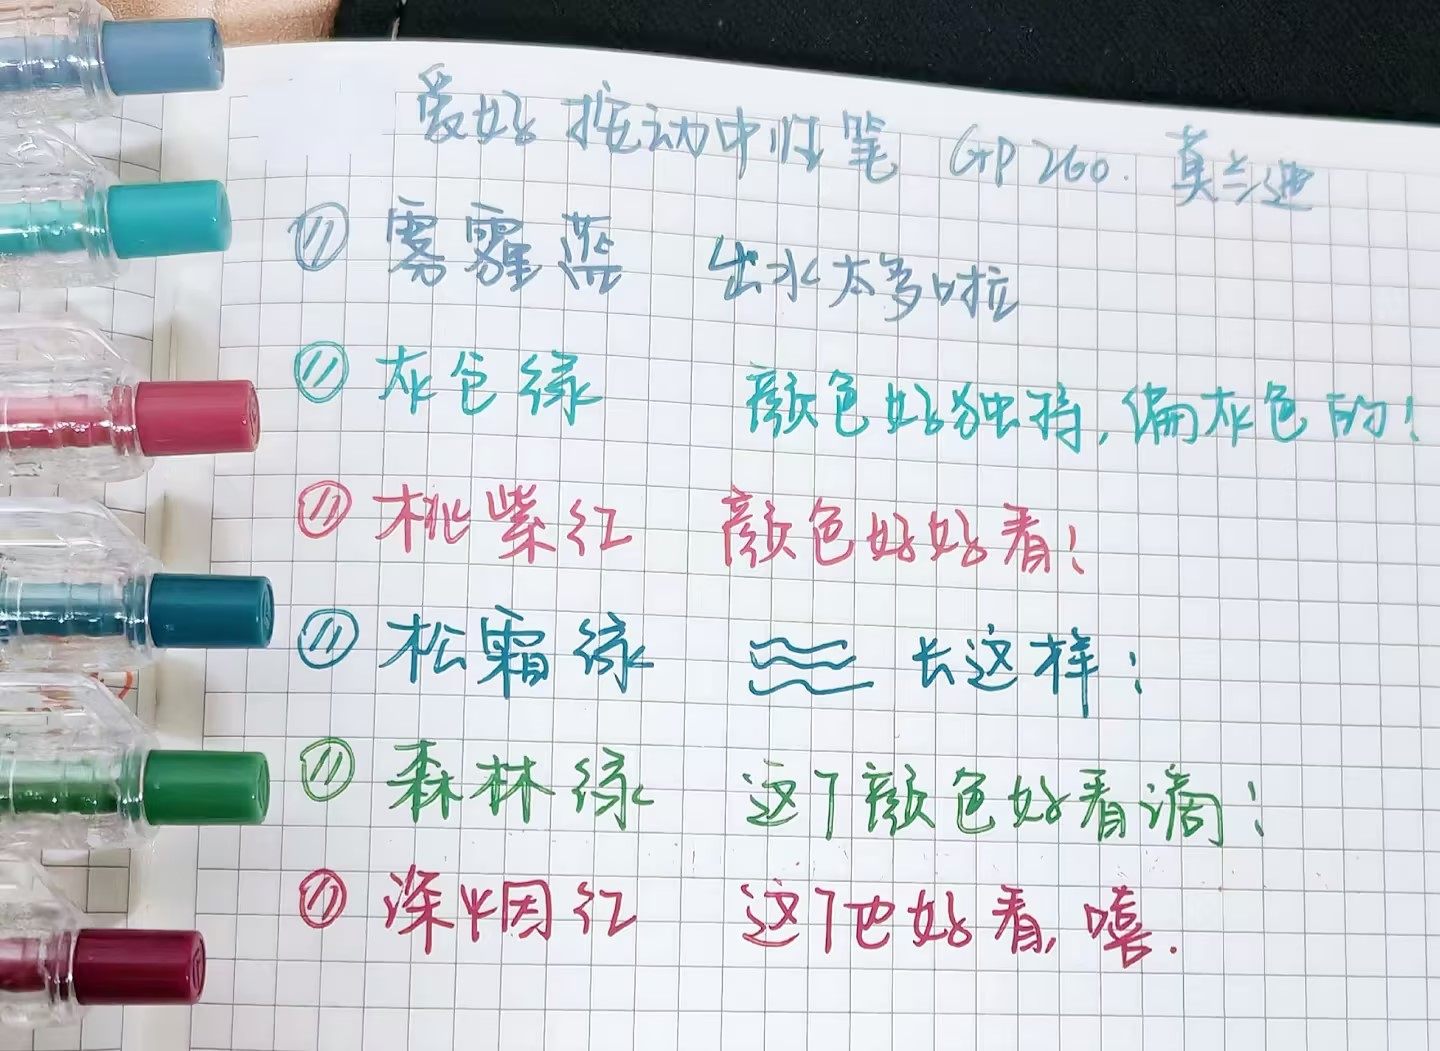 爱好按动中性笔 GP260. 莫兰迪
雾霾蓝 出水太多啦
灰色绿 颜色好独特,偏灰色的!
桃紫红 颜色好好看!
松霜绿 长这样!
森林绿 这个颜色好看滴!
深烟红 这个也好看,嘻.